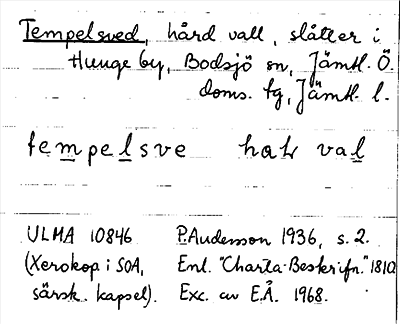 Tempelsved, hård vall, slåtter i
Hunge by, Bodsjö sn, Jämtl. Ö.
doms. fg, Jämtl. l.
tempelsve haɫ val
ULMA 10846 P. Andersson 1936, s. 2.
(Xerokop i SOA, Enl. "Charta-Beskrifn." 1810
särsk. kapsel). Exc. av E.Å. 1968.